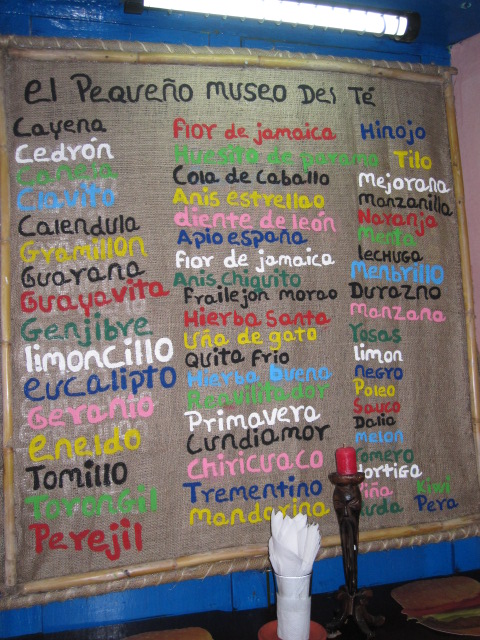 el Pequeño museo Del Té
Cayena
Cedrón
Canela
Clavito
Calendula
Gramillon
Guarana
Guayavita
Genjibre
limoncillo
eucalipto
Geranio
eneldo
Tomillo
Torongil
Perejil
flor de jamaica
Huesito de parama
Cola de caballo
Anis estrellao
diente de león
Apio españa
flor de jamaica
Anis Chiquito
Frailejon morao
Hierba Santa
Uña de gato
Quita Frio
Hierba bueno
Primavera
Cundiamor
Chiricuaco
Trementino
mandarina
Hinojo
Tilo
Mejorana
manzanilla
Naranja
Menta
Lechuga
Menbrillo
Durazno
Manzana
Yosas
limon
negro
Poleo
Sauco
Dalia
melon
Kiwi
Pera